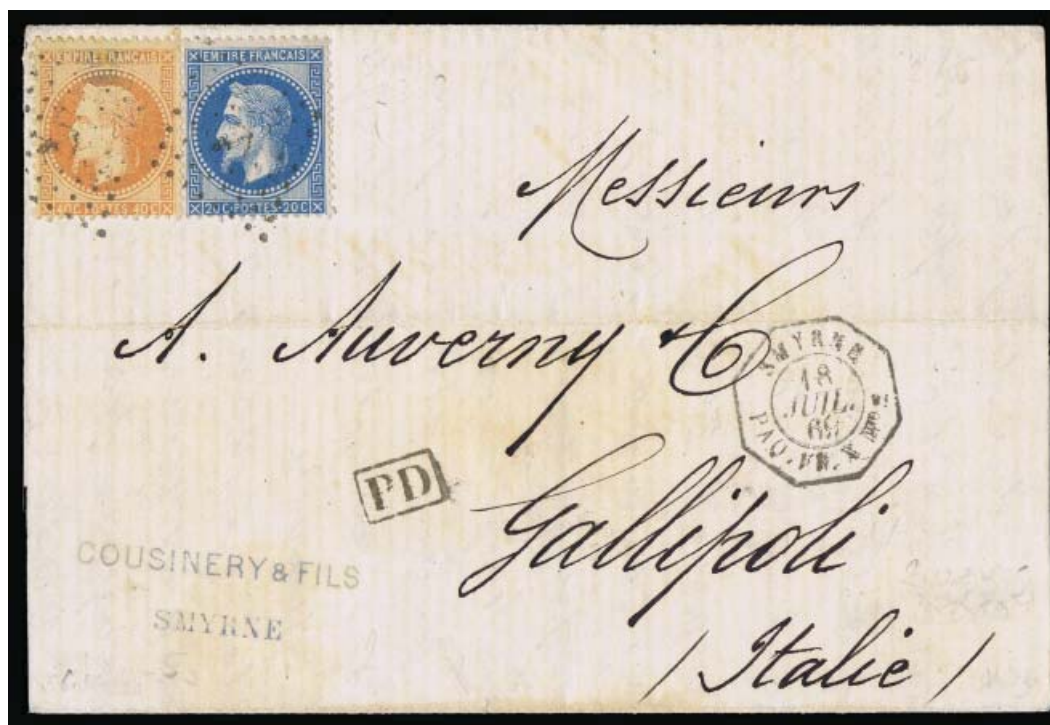 EMPIRE FRANCAIS
40C·POSTES·40C
EMPIRE FRANCAIS
20C·POSTES·20C
Messieurs
A. Auverny & C
SMYRNE
18
JUIL.
69
PAQ. FR. X
PD
Gallipoli
COUSINERY & FILS
SMYRNE
( Italie )